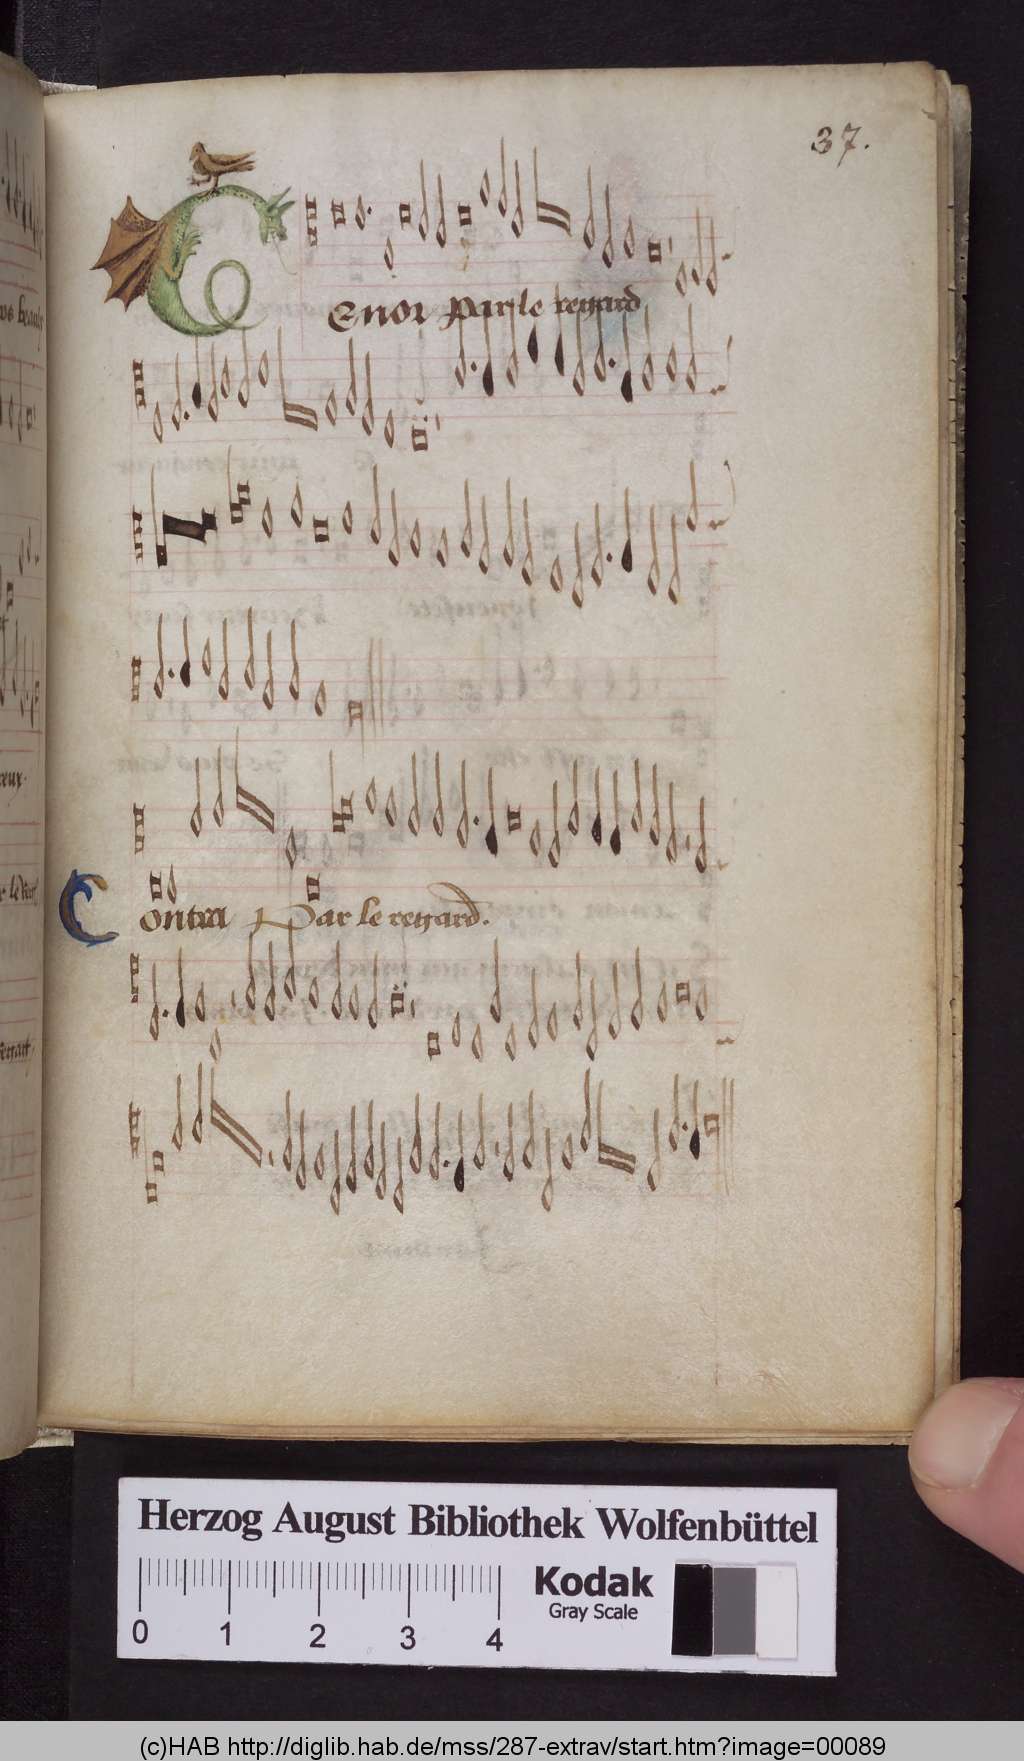 37.
Tenor Par le regard
Contra Par le regard.
Herzog August Bibliothek Wolfenbüttel
Kodak
Gray Scale
0 1 2 3 4
(c)HAB http://diglib.hab.de/mss/287-extrav/start.htm?image=00089